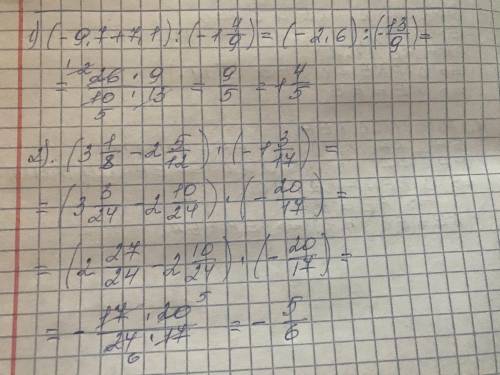 1) (-9,7+7,1) : (-1 4/9) = (-2,6) : (-13/9) =
= 26 · 9 / 10 · 13 = 9/5 = 1 4/5
2). (3 1/8 - 2 5/12) · (-1 3/17) =
= (3 3/24 - 2 10/24) · (-20/17) =
= (2 27/24 - 2 10/24) · (-20/17) =
= - 17 · 20 / 24 · 17 = - 5/6